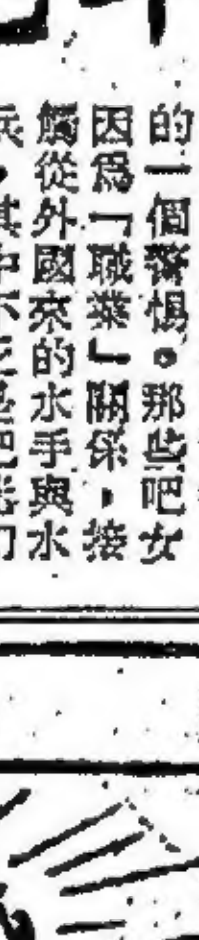 的一個警惕。那些吧女
因爲「職業」關係,接
觸從外國來的水手與水
兵,其中不